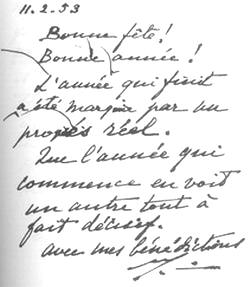 11.2.53
Bonne fête!
Bonne année!
L'année qui finit
a été marquée par un
progrès réel.
Que l'année qui
commence en voit
un autre tout à
fait décisif.
avec mes bénédictions